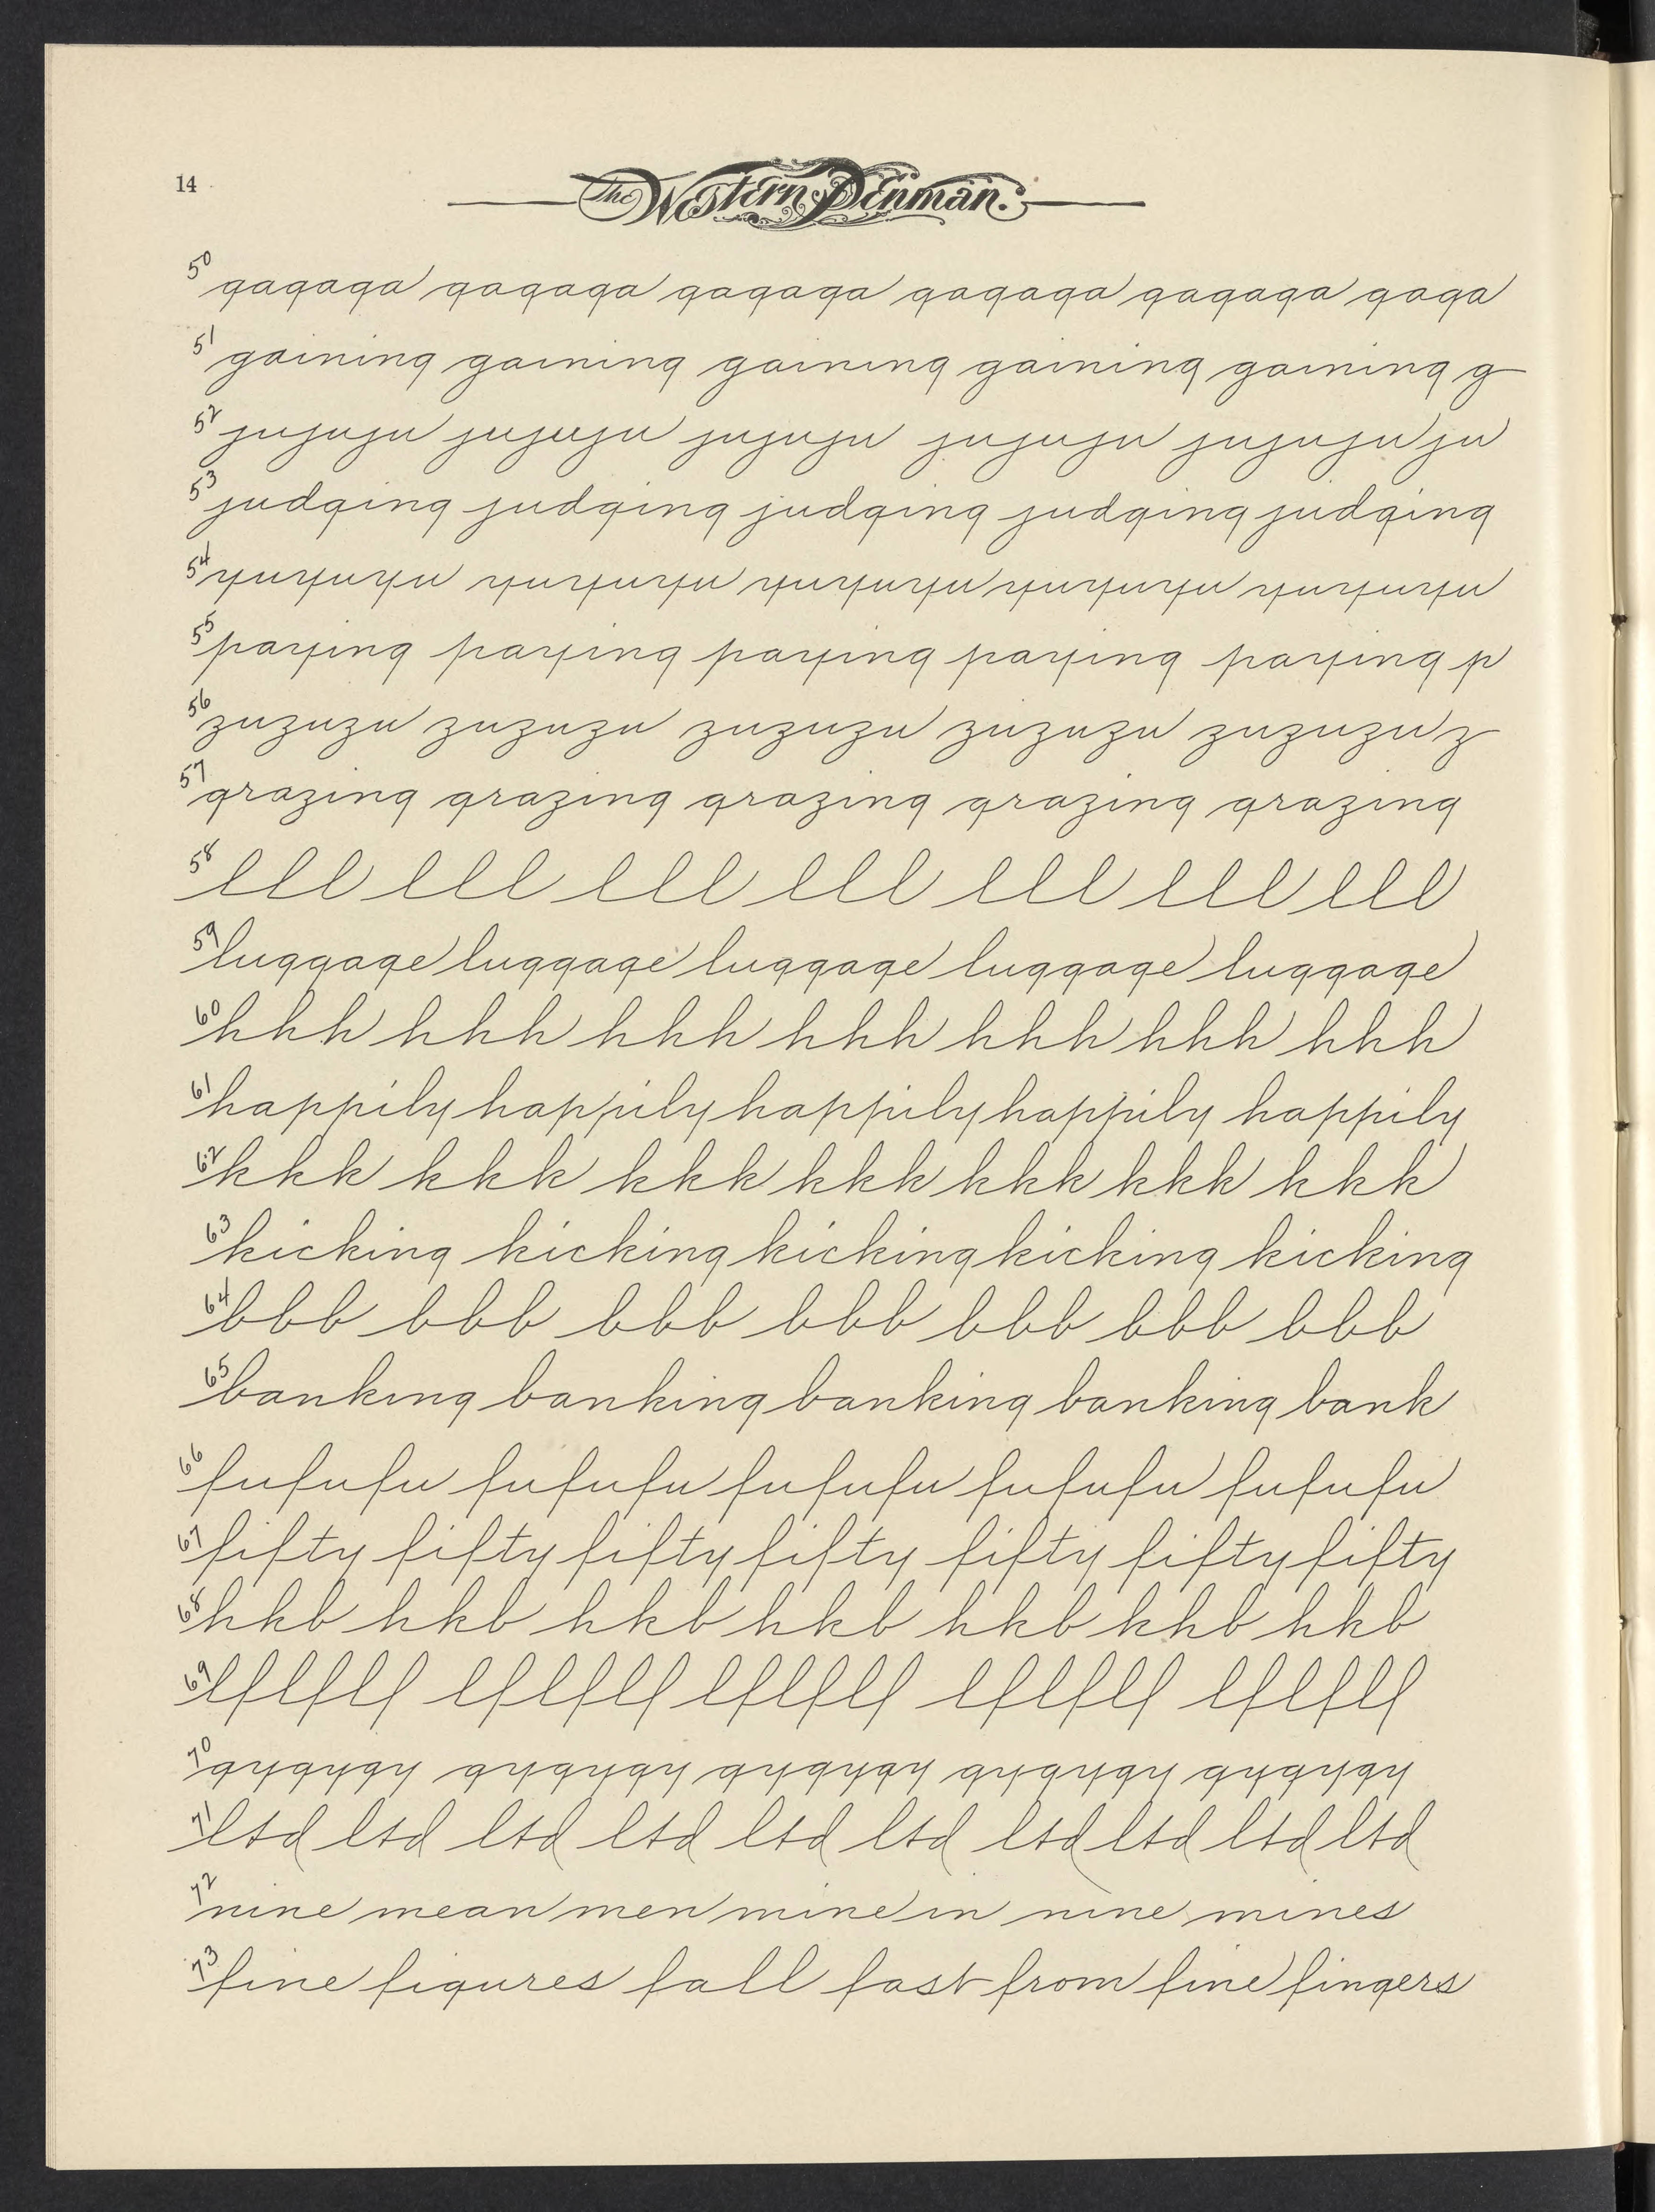 14
The Western Penman.
50 gagaga gagaga gagaga gagaga gagaga gaga
51 gaining gaining gaining gaining gaining g
52 jujuju jujuju jujuju jujuju jujuju ju
53 judging judging judging judging judging
54 yuyuyu yuyuyu yuyuyu yuyuyu yuyuyu
55 paying paying paying paying paying p
56 zuzuzu zuzuzu zuzuzu zuzuzu zuzuzu z
57 grazing grazing grazing grazing grazing
58 lll lll lll lll lll lll lll
59 luggage luggage luggage luggage luggage
60 hhh hhh hhh hhh hhh hhh hhh
61 happily happily happily happily happily
62 kkk kkk kkk kkk kkk kkk kkk
63 kicking kicking kicking kicking kicking
64 bbb bbb bbb bbb bbb bbb bbb
65 banking banking banking banking bank
66 fufufu fufufu fufufu fufufu fufufu
67 fifty fifty fifty fifty fifty fifty fifty
68 hkb hkb hkb hkb hkb khb hkb
69 lflflf lflflf lflflf lflflf lflflf
70 gygygy gygygy gygygy gygygy gygygy
71 ltd ltd ltd ltd ltd ltd ltd ltd ltd ltd
72 nine mean men mine in nine mines
73 fine figures fall fast from fine fingers